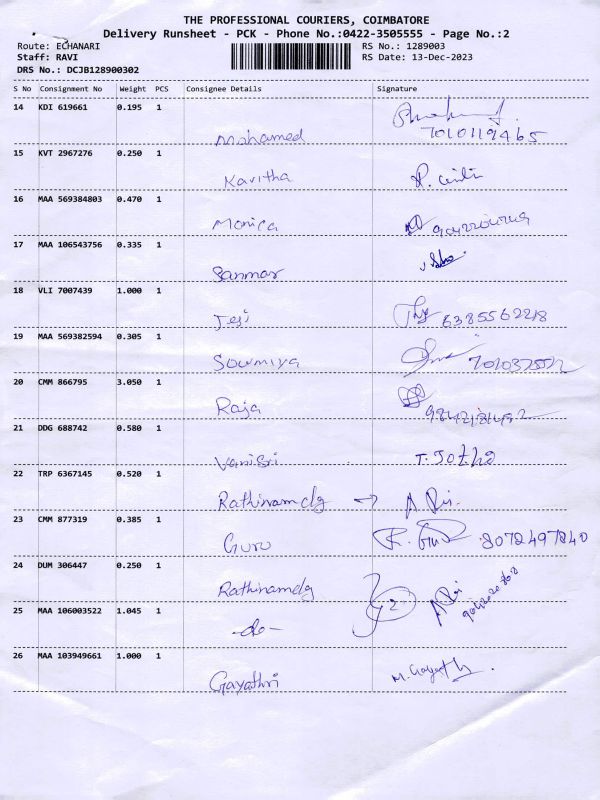 THE PROFESSIONAL COURIERS, COIMBATORE
Delivery Runsheet - PCK - Phone No.:0422-3505555 - Page No.:2
Route: ECHANARI RS No.: 1289003
Staff: RAVI RS Date: 13-Dec-2023
DRS No.: DCJB128900302
S No Consignment No Weight PCS Consignee Details Signature
14 KDI 619661 0.195 1
Mohamed 7010119465
15 KVT 2967276 0.250 1
Kavitha
16 MAA 569384803 0.470 1
Monica
17 MAA 106543756 0.335 1
Sanmar
18 VLI 7007439 1.000 1
Jesi 6385562218
19 MAA 569382594 0.305 1
Sowmiya
20 CMM 866795 3.050 1
Raja
21 DDG 688742 0.580 1
Vanisri
22 TRP 6367145 0.520 1
Rathinamclg →
23 CMM 877319 0.385 1
Guru 8072497840
24 DUM 306447 0.250 1
Rathinamclg
25 MAA 106003522 1.045 1
-do-
26 MAA 103949661 1.000 1
Gayathri